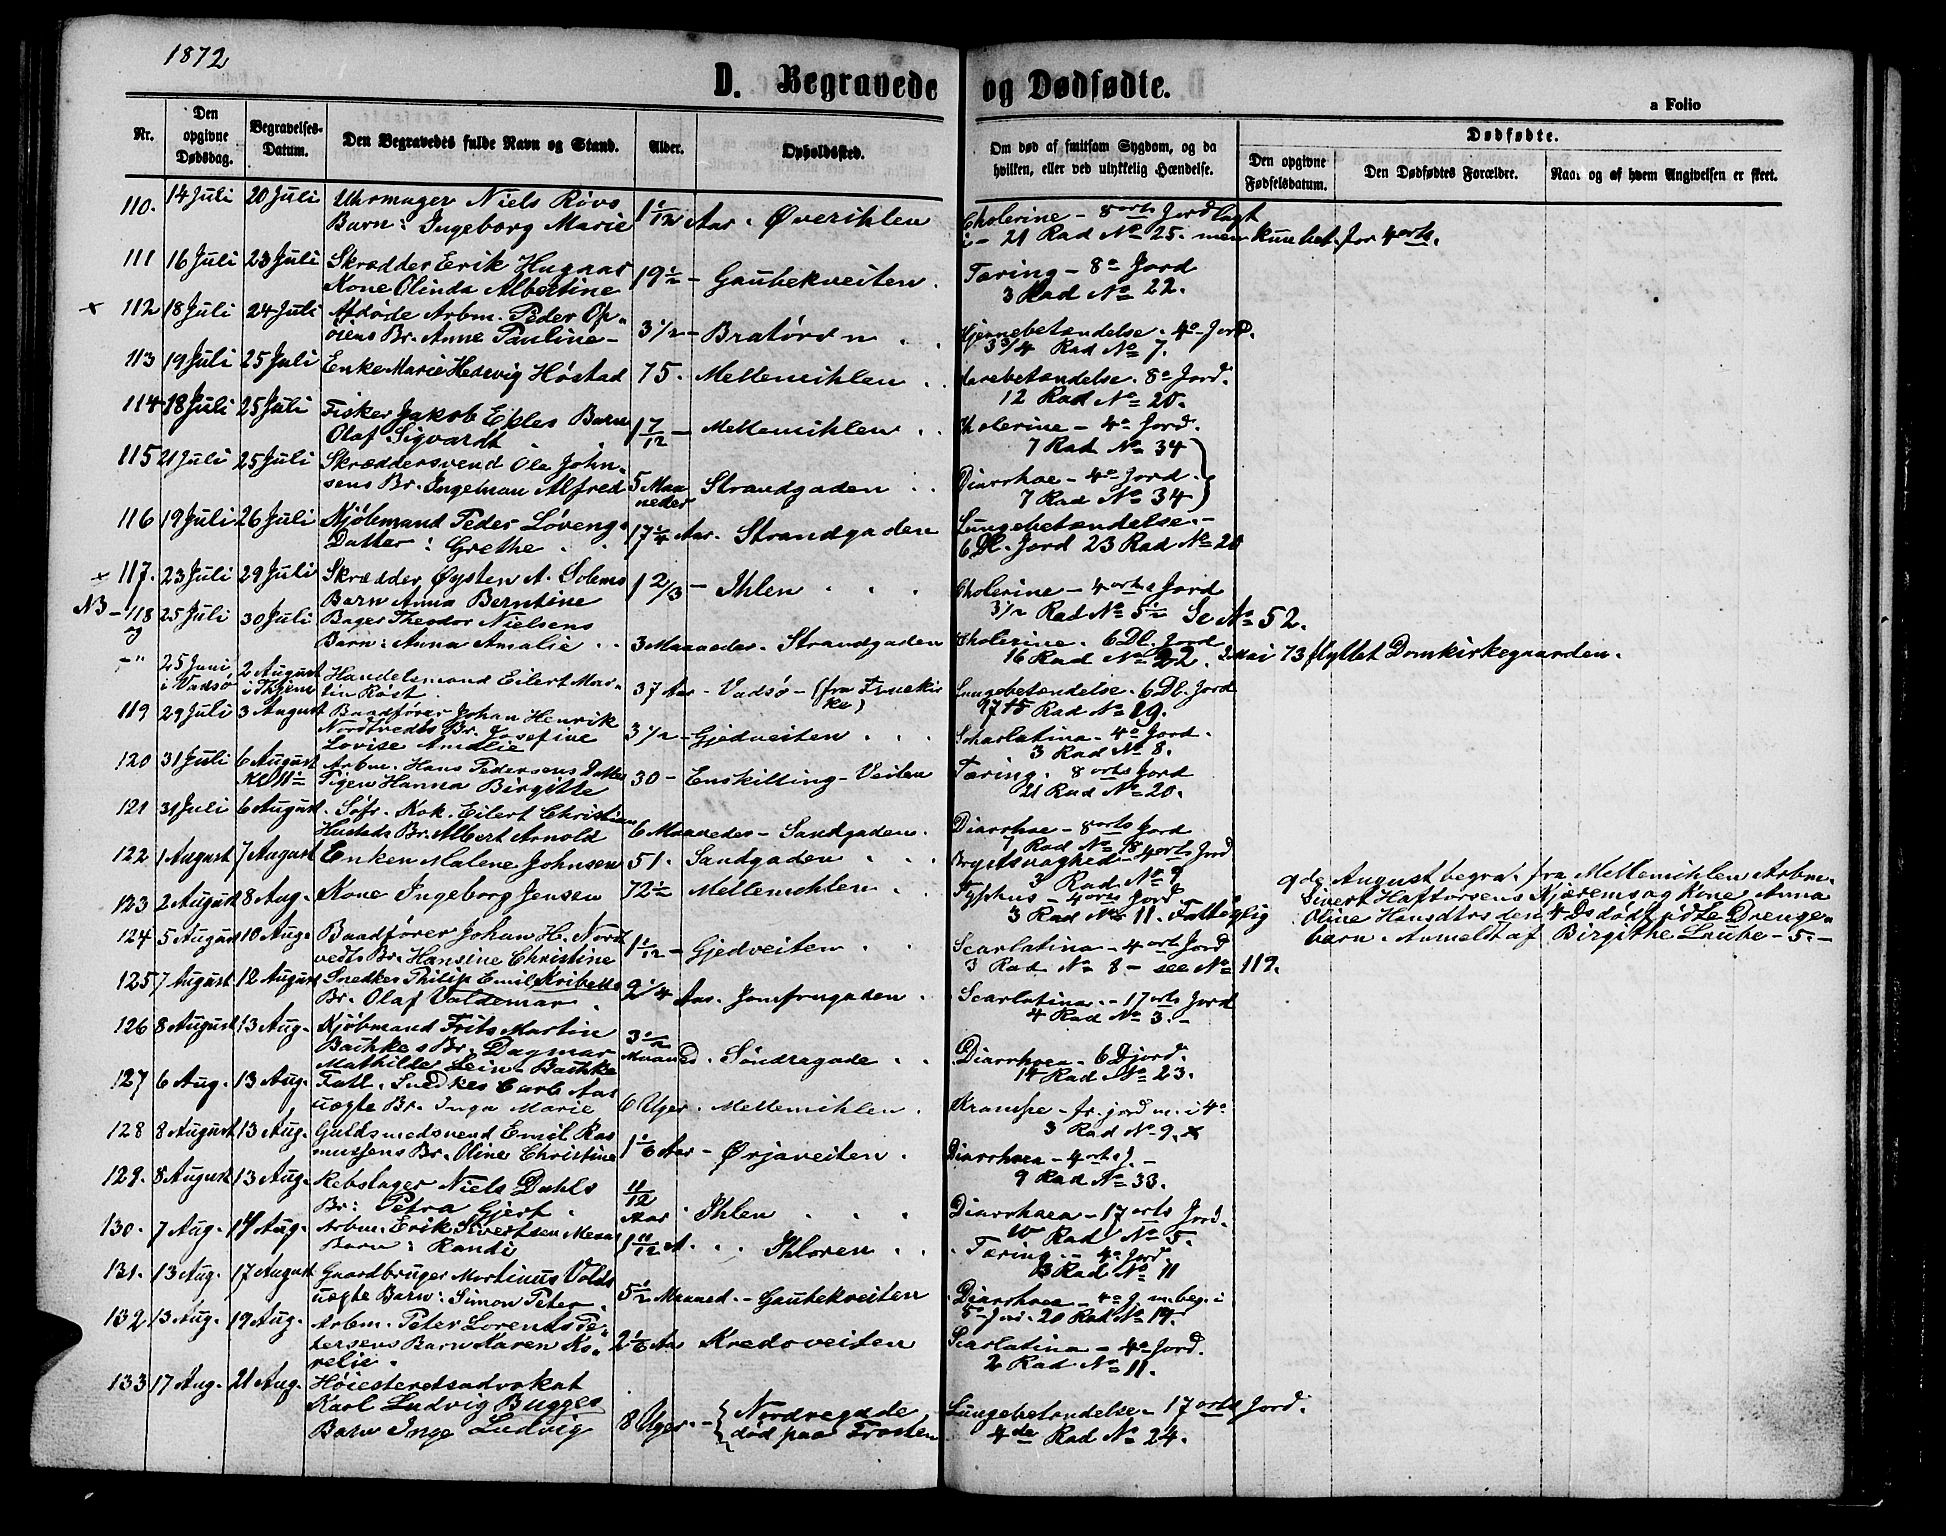 1872
D. Begravede og Dødfødte.
a Folio
Nr.
Den opgivne Dødsdag.
Begravelses-Datum.
Den Begravedes fulde Navn og Stand.
Alder.
Opholdssted.
Om død af smitsom Sygdom, og da hvilken, eller ved ulykkelig Hændelse.
Dødfødte.
Den opgivne Fødselsdatum.
Den Dødfødtes Forældre.
Naar og af hvem Angivelsen er skeet.
110. 14 Juli 20 Juli Uhrmager Niels Rövs
Barn: Ingeborg Marie 1 1/12 Aar. Øverihlen Cholerine - 8 orts Jordlagt
i - 21 Rad No 25. men kun bet. for 4 orts.
111 16 Juli 23 Juli Skrædder Erik
Kone Olinda Albertine 19 1/2 - Gaubekveiten. Tæring - 8o Jord
3 Rad No 22.
x 112 18 Juli 24 Juli Afdøde Arbm. Peder Op-
öiens Br. Anne Pauline - 3 1/2 - Bratören . . Hjernebetændelse. 4o Jord.
3 3/4 Rad No 7.
113 19 Juli 25 Juli Enke Marie Hedevig Höstad 75. Mellemihlen . . 8o Jord.
12 Rad No 20.
114 18 Juli 25 Juli Fisker Jakob Ekles Barn
Olaf Sigvardt 1 7/12 - Mellemihlen . . Cholerine - 4o Jord.
7 Rad No 34
115 21 Juli 25 Juli Skræddersvend Ole John-
sens Br. Ingelman Alfred 5 Maaneder Strandgaden . . Diarrhoe - 4o Jord.
7 Rad No 34
116 19 Juli 26 Juli Kjöbmand Peder Lövengs
Datter: Grethe . . 17 1/4 Aar. Strandgaden Lungebetændelse. -
6 Dl. Jord 23 Rad No 20
x 117. 23 Juli 29 Juli Skrædder Øysten A. Solems
Barn Anna Berntine 1 2/3 - Ihlen . . . Cholerine - 4 orts Jord
3 1/2 Rad No 5 1/2 Se No 52.
NB - 118 25 Juli 30 Juli Bager Theodor Nielsens
og Barn: Anna Amalie . . 3 Maaneder. Strandgaden Cholerine. 6 Dl. Jord
16 Rad No 22. 2 Mai 73 flyttet Domkirkegaarden.
-" 25 Juni i Vadsö 2 August i Thjem Handelsmand Eilert Mar-
tin Röst. 37 Aar - Vadsö - (fra Fruekirke) Lungebetændelse. 6 Dl. Jord
17 + 5 Rad No 19.
119 29 Juli 3 August Baadförer Johan Henrik
Nordtvedts Br. Josefine
Lovise Amalie 3 1/2 - Gjedveiten . . . Scharlatina - 4o Jord.
3 Rad No 8.
120 31 Juli 6 August Kl 11 1/2 Arbm. Hans Pedersens Datter
Pigen Hanna Birgitte 30 - Enskilling-Veiten Tæring. 8 orts Jord
21 Rad No 20.
121 31 Juli 6 August. Söfr. Kok. Eilert Christian
Hustads Br. Albert Arnold 6 Maaneder - Sandgaden. Diarrhoe - 8 orts Jord
7 Rad No 18
122 1 August 7 August Enken Malene Johnsen 51. Sandgaden . . . Brystsvaghed - 4 orts Jord
3 Rad No 9
123 2 August 8 Aug. Kone Ingeborg Jensen 72 1/2 Mellemihlen . . Typhus - 4 orts Jord
3 Rad No 11. Fattiglig
9de August begra. fra Mellemihlen Arbm.
Sivert Haftorsens Kjærems og Kone Anna
Oline Hansdtrs den 4 Ds dödfödte Drenge-
barn. Anmeldt af Birgithe Laube - 5. -
124 5 August 10 Aug. Baadförer Johan H. Nort
vedts Br. Hansine Christine 1 1/12 - Gjedveiten . . Scarlatina - 4 orts Jord
3 Rad No 8 - see No 119.
125 7 August 12 August Snedker Philip Emil Kribells
Br. Olaf Valdemar . 9 1/4 Aar. Jomfrugaden. Scarlatina. - 17 orts Jord
4 Rad No 3. -
126 8 August 13 Aug. Kjöbmand Frits Martin
Bachkes Br. Dagmar
Mathilde Lein-Bachke 3 1/2 Maaned. Söndregade . . Diarrhoea - 6 Djord.
14 Rad No 23.
127 6 Aug. 13 Aug. Fatl. Snedker Carl Aas
uægte Br. Inga Marie 6 Uger. Mellemihlen. Krampe - fr. jord m. i 4o
3 Rad No 9. x
128 8 August 13 Aug. Guldsmedsvend Emil Ras
mussens Br. Oline Christine 1 1/6 Aar - Ørjaveiten . Diarrhoea - 4 orts J. -
9 Rad No 33.
129. 8 August 13 Aug. Rebslager Niels Dahls
Br: Petra Gjert . 11/12 Aar. Ihlen . . . Diarrhoea - 17 orts Jord.
10 Rad No 5.
130. 7 Aug. 14 Aug. Arbm. Erik Sivertsen
Barn: Randi 1 11/12 A. . . Ihloren . . Tæring. - 4o Jord.
13 Rad No 11
131. 13 Aug. 17 August Gaardbruger Martinus Volds
uægte Barn: Simon Peter. 5 1/2 Maaned. - Gaubekveiten Diarrhoea - 4o J. m. beg. i
8o Jor. 20 Rad No 14.
132 13 Aug. 19 Aug. Arbm. Peter Lorents Pe-
tersens Barn Karen Ko-
relie. 2 1/6 Aar Kredoveiten Scarlatina - 4o Jord.
2 Rad No 11.
133 17 Aug. 21 Aug. Höiesteretsadvokat
Karl Ludvig Bugges
Barn Inge Ludvig 8 Uger. - Nordregade
död paa Frosten Lungebetændelse - 17 orts Jord.
4de Rad No 24.